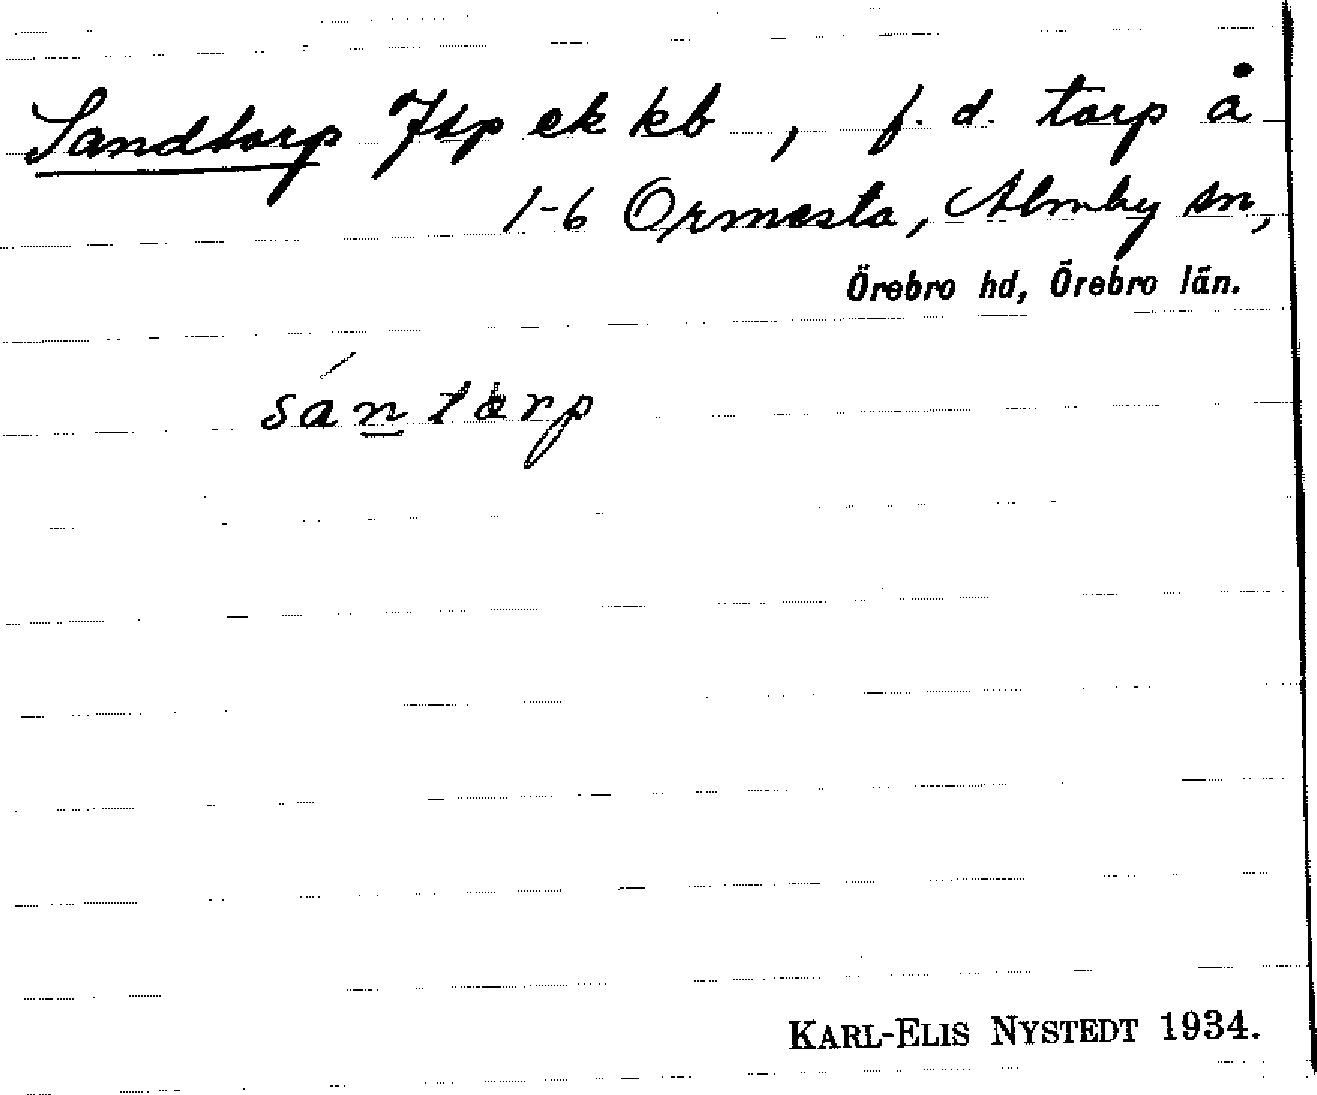 Sandtorp Jtp ek kb, f. d. torp å
1-6 Ormesta, Almby sn,
Örebro hd, Örebro län.
sántàrp
KARL-ELIS NYSTEDT 1934.